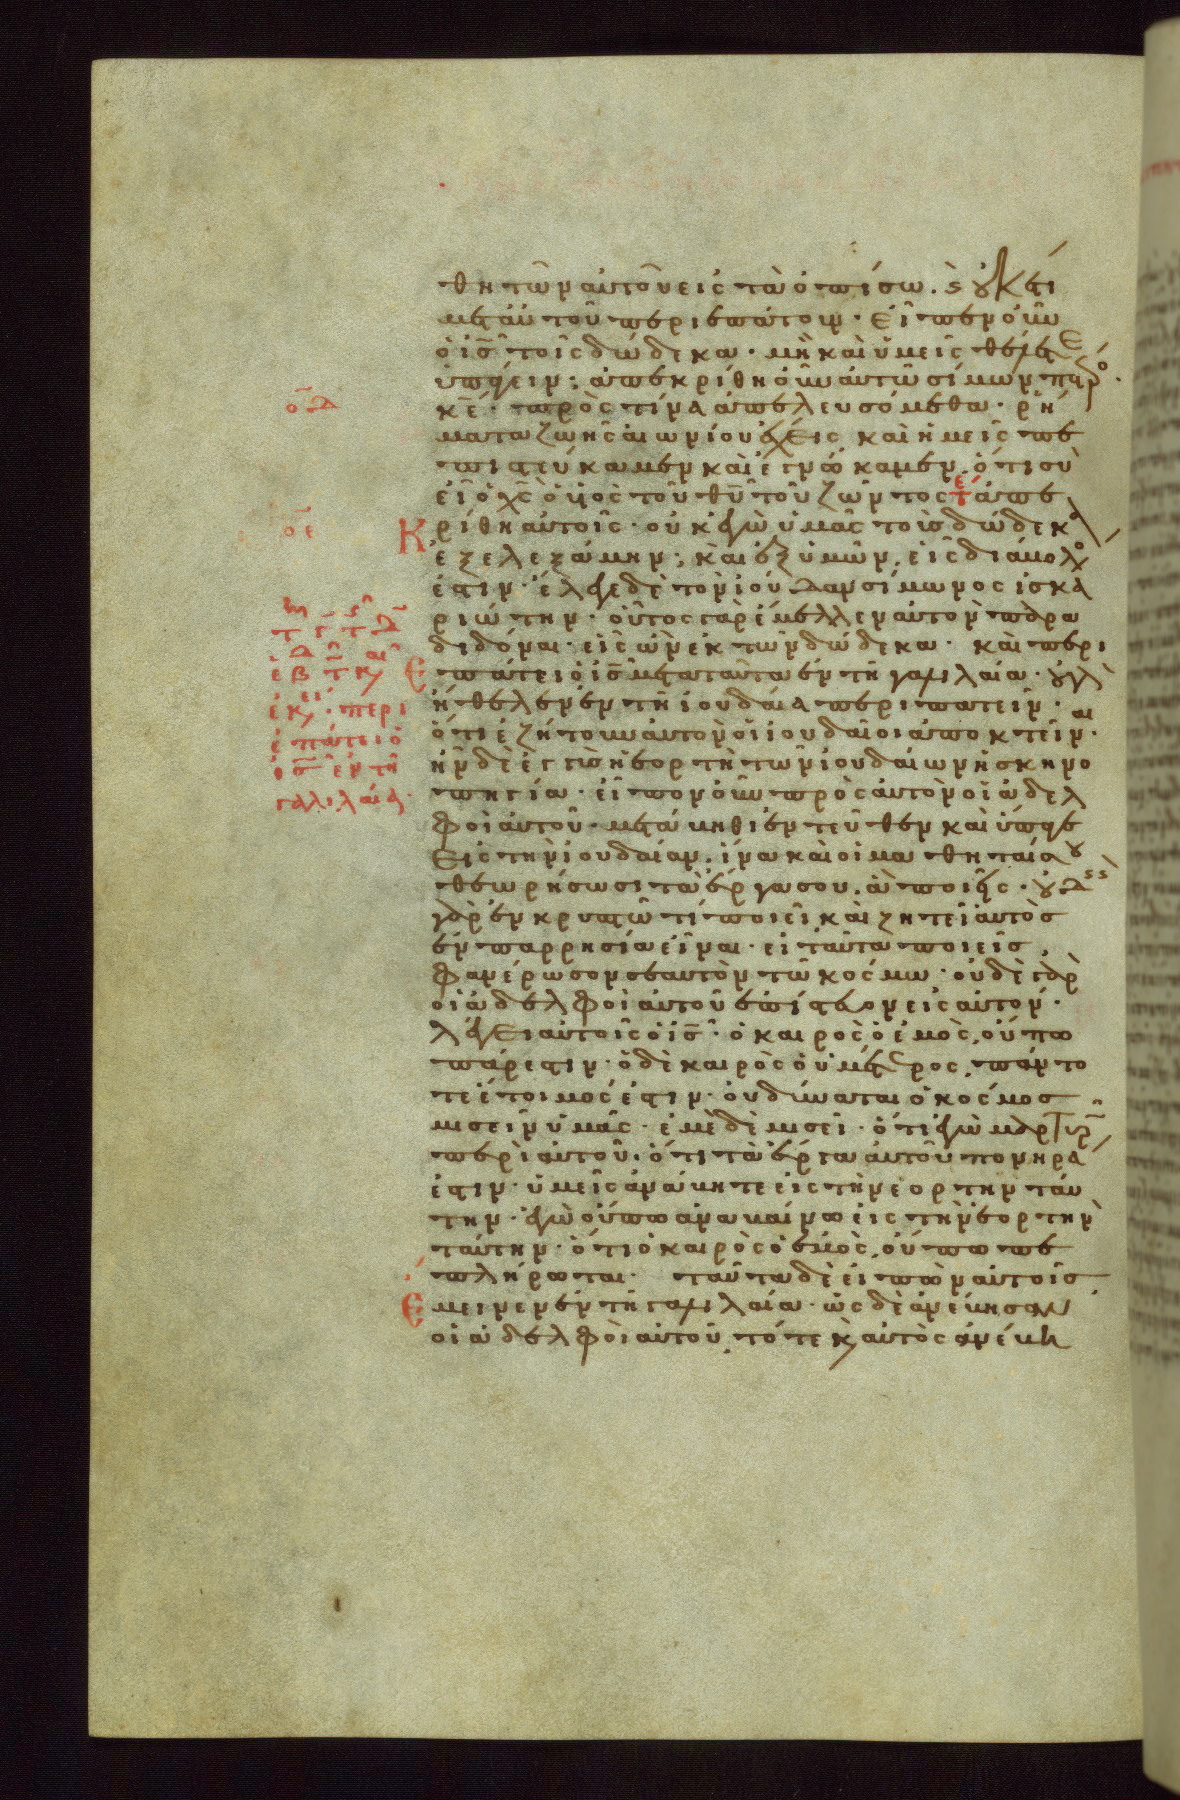 θητῶν αὐτοῦ εἰς τὰ ὀπίσω. ϗ οὐκέτι
μετ' αὐτοῦ περιεπάτουν. εἶπεν οὖν
ὁ ις̅ τοῖς δώδεκα. μὴ καὶ ὑμεῖς θέλετε
ὑπάγειν; ἀπεκρίθη οὖν αὐτῷ σίμων πέτρος.
κε̅. πρὸς τίνα ἀπελευσόμεθα. ῥή
ματα ζωῆς αἰωνίου ἔχεις καὶ ἡμεῖς πε
πιστεύκαμεν καὶ ἐγνώκαμεν. ὅτι σὺ
εἶ ὁ χς̅ ὁ υἱὸς τοῦ θυ̅ τοῦ ζῶντος ἀπε
οδ
κρίθη αὐτοῖς. οὐκ ἐγὼ ὑμᾶς τοὺς δώδεκα
οε
ἐξελεξάμην; καὶ ἐξ ὑμῶν εἷς διάβολος
ἐστιν. ἔλεγε δὲ τὸν ἰούδαν σίμωνος ἰσκα
ριώτην. οὗτος γὰρ ἔμελλεν αὐτὸν παρα
διδόναι. εἷς ὢν ἐκ τῶν δώδεκα. καὶ περι
επάτει ὁ ις̅ μετὰ ταῦτα ἐν τῇ γαλιλαίᾳ. οὐ γὰρ
ἤθελεν ἐν τῇ ἰουδαίᾳ περιπατεῖν.
ὅτι ἐζήτουν αὐτὸν οἱ ἰουδαῖοι ἀποκτεῖναι.
ἦν δὲ ἐγγὺς ἡ ἑορτὴ τῶν ἰουδαίων ἡ σκηνο
πηγία. εἶπον οὖν πρὸς αὐτὸν οἱ ἀδελ
περι
επάτει ὁ
ις̅ ἐν τῇ
γαλιλαίᾳ.
φοὶ αὐτοῦ. μετάβηθι ἐντεῦθεν καὶ ὕπαγε
εἰς τὴν ἰουδαίαν. ἵνα καὶ οἱ μαθηταί σου
θεωρήσωσι τὰ ἔργα σου. ἃ ποιεῖς. οὐδεὶς
γὰρ ἐν κρυπτῷ τί ποιεῖ καὶ ζητεῖ αὐτὸς
ἐν παρρησίᾳ εἶναι. εἰ ταῦτα ποιεῖς,
φανέρωσον σεαυτὸν τῷ κόσμῳ. οὐδὲ γὰρ
οἱ ἀδελφοὶ αὐτοῦ ἐπίστευον εἰς αὐτόν.
λέγει αὐτοῖς ὁ ις̅. ὁ καιρὸς ὁ ἐμὸς, οὔπω
πάρεστιν. ὁ δὲ καιρὸς ὁ ὑμέτερος, πάντο
τέ ἕτοιμός ἐστιν. οὐ δύναται ὁ κόσμος
μισεῖν ὑμᾶς. ἐμὲ δὲ μισεῖ. ὅτι ἐγὼ μαρτυρῶ
περὶ αὐτοῦ. ὅτι τὰ ἔργα αὐτοῦ πονηρά
ἐστιν. ὑμεῖς ἀνάβητε εἰς τὴν ἑορτὴν ταύ
την. ἐγὼ οὔπω ἀναβαίνω εἰς τὴν ἑορτὴν
ταύτην. ὅτι ὁ καιρὸς ὁ ἐμὸς, οὔπω πε
πλήρωται. ταῦτα δὲ εἰπὼν αὐτοῖς
ἔμεινεν ἐν τῇ γαλιλαίᾳ. ὡς δὲ ἀνέβησαν
οἱ ἀδελφοὶ αὐτοῦ, τότε ϗ αὐτὸς ἀνέβη